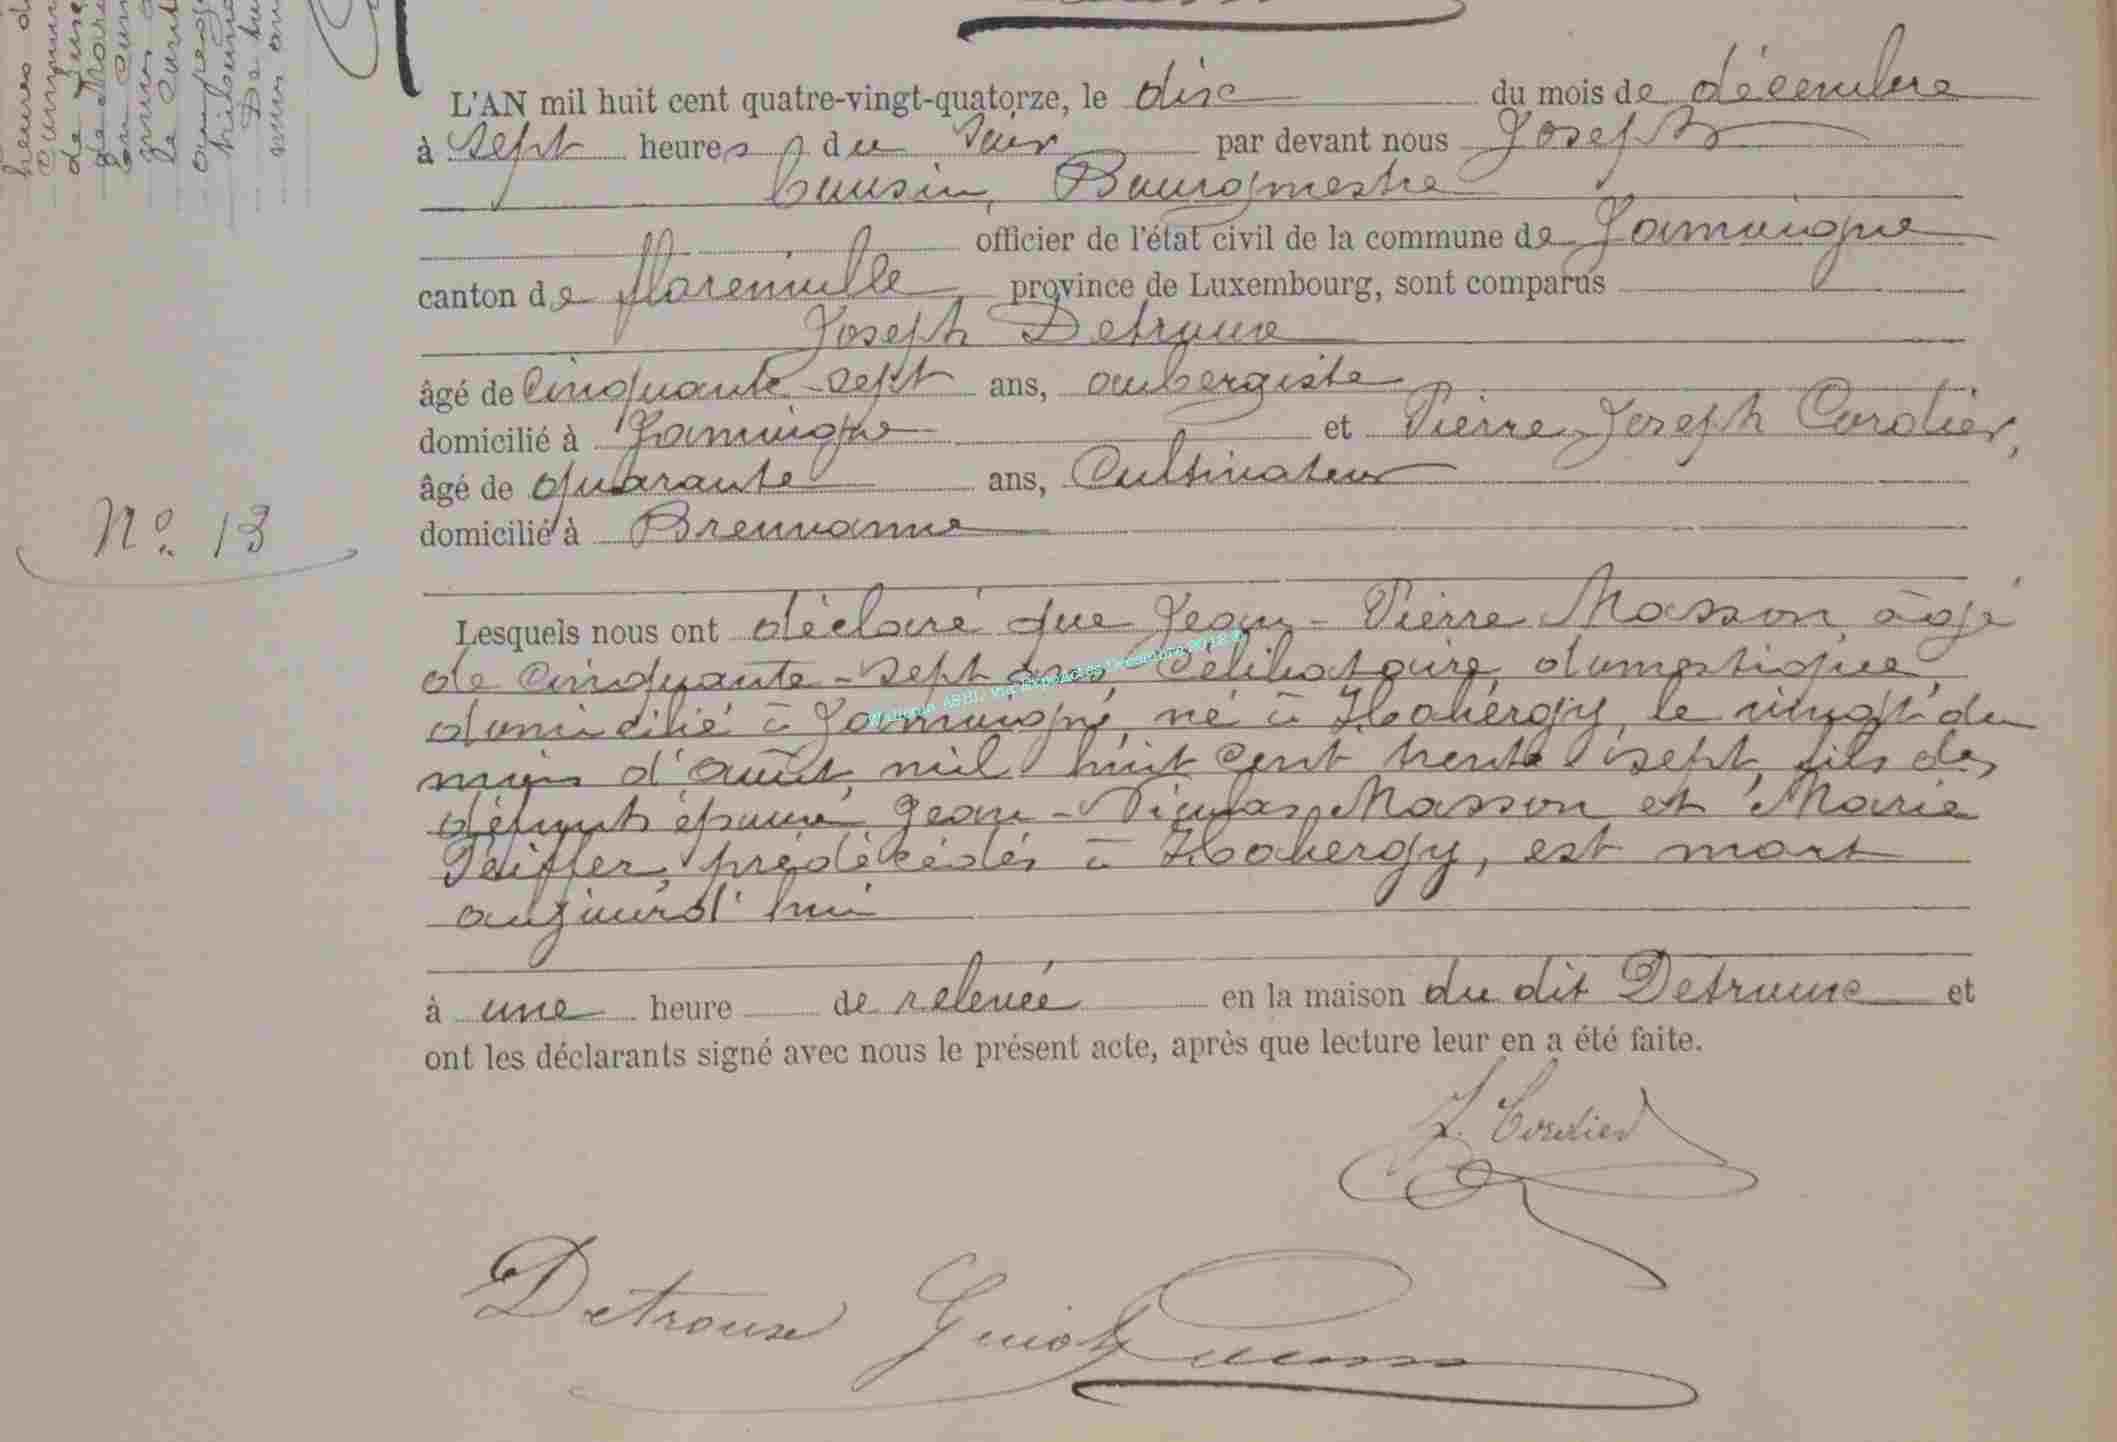 L'AN mil huit cent quatre-vingt-quatorze, le dix du mois de décembre
à sept heures du soir par devant nous Joseph
Cousin, Bourgmestre
officier de l'état civil de la commune de Jamoigne
canton de florenville province de Luxembourg, sont comparus
Joseph Detroux
âgé de Cinquante-sept ans, aubergiste
domicilié à Jamoigne et Pierre-Joseph Cordier,
âgé de quarante ans, Cultivateur
domicilié à Breuvanne
N° 13
Lesquels nous ont déclaré que Jean-Pierre Masson, âgé
de cinquante-sept ans, célibataire, domestique,
domicilié à Jamoigne, né à Habergy, le vingt du
mois d'août, mil huit cent trente sept, fils des
défunts époux Jean-Nicolas Masson et Marie
Peiffer, prédécédés à Habergy, est mort
aujourd'hui
à une heure de relevée en la maison du dit Detroux et
ont les déclarants signé avec nous le présent acte, après que lecture leur en a été faite.
J. Cordier
Detroux Guiot